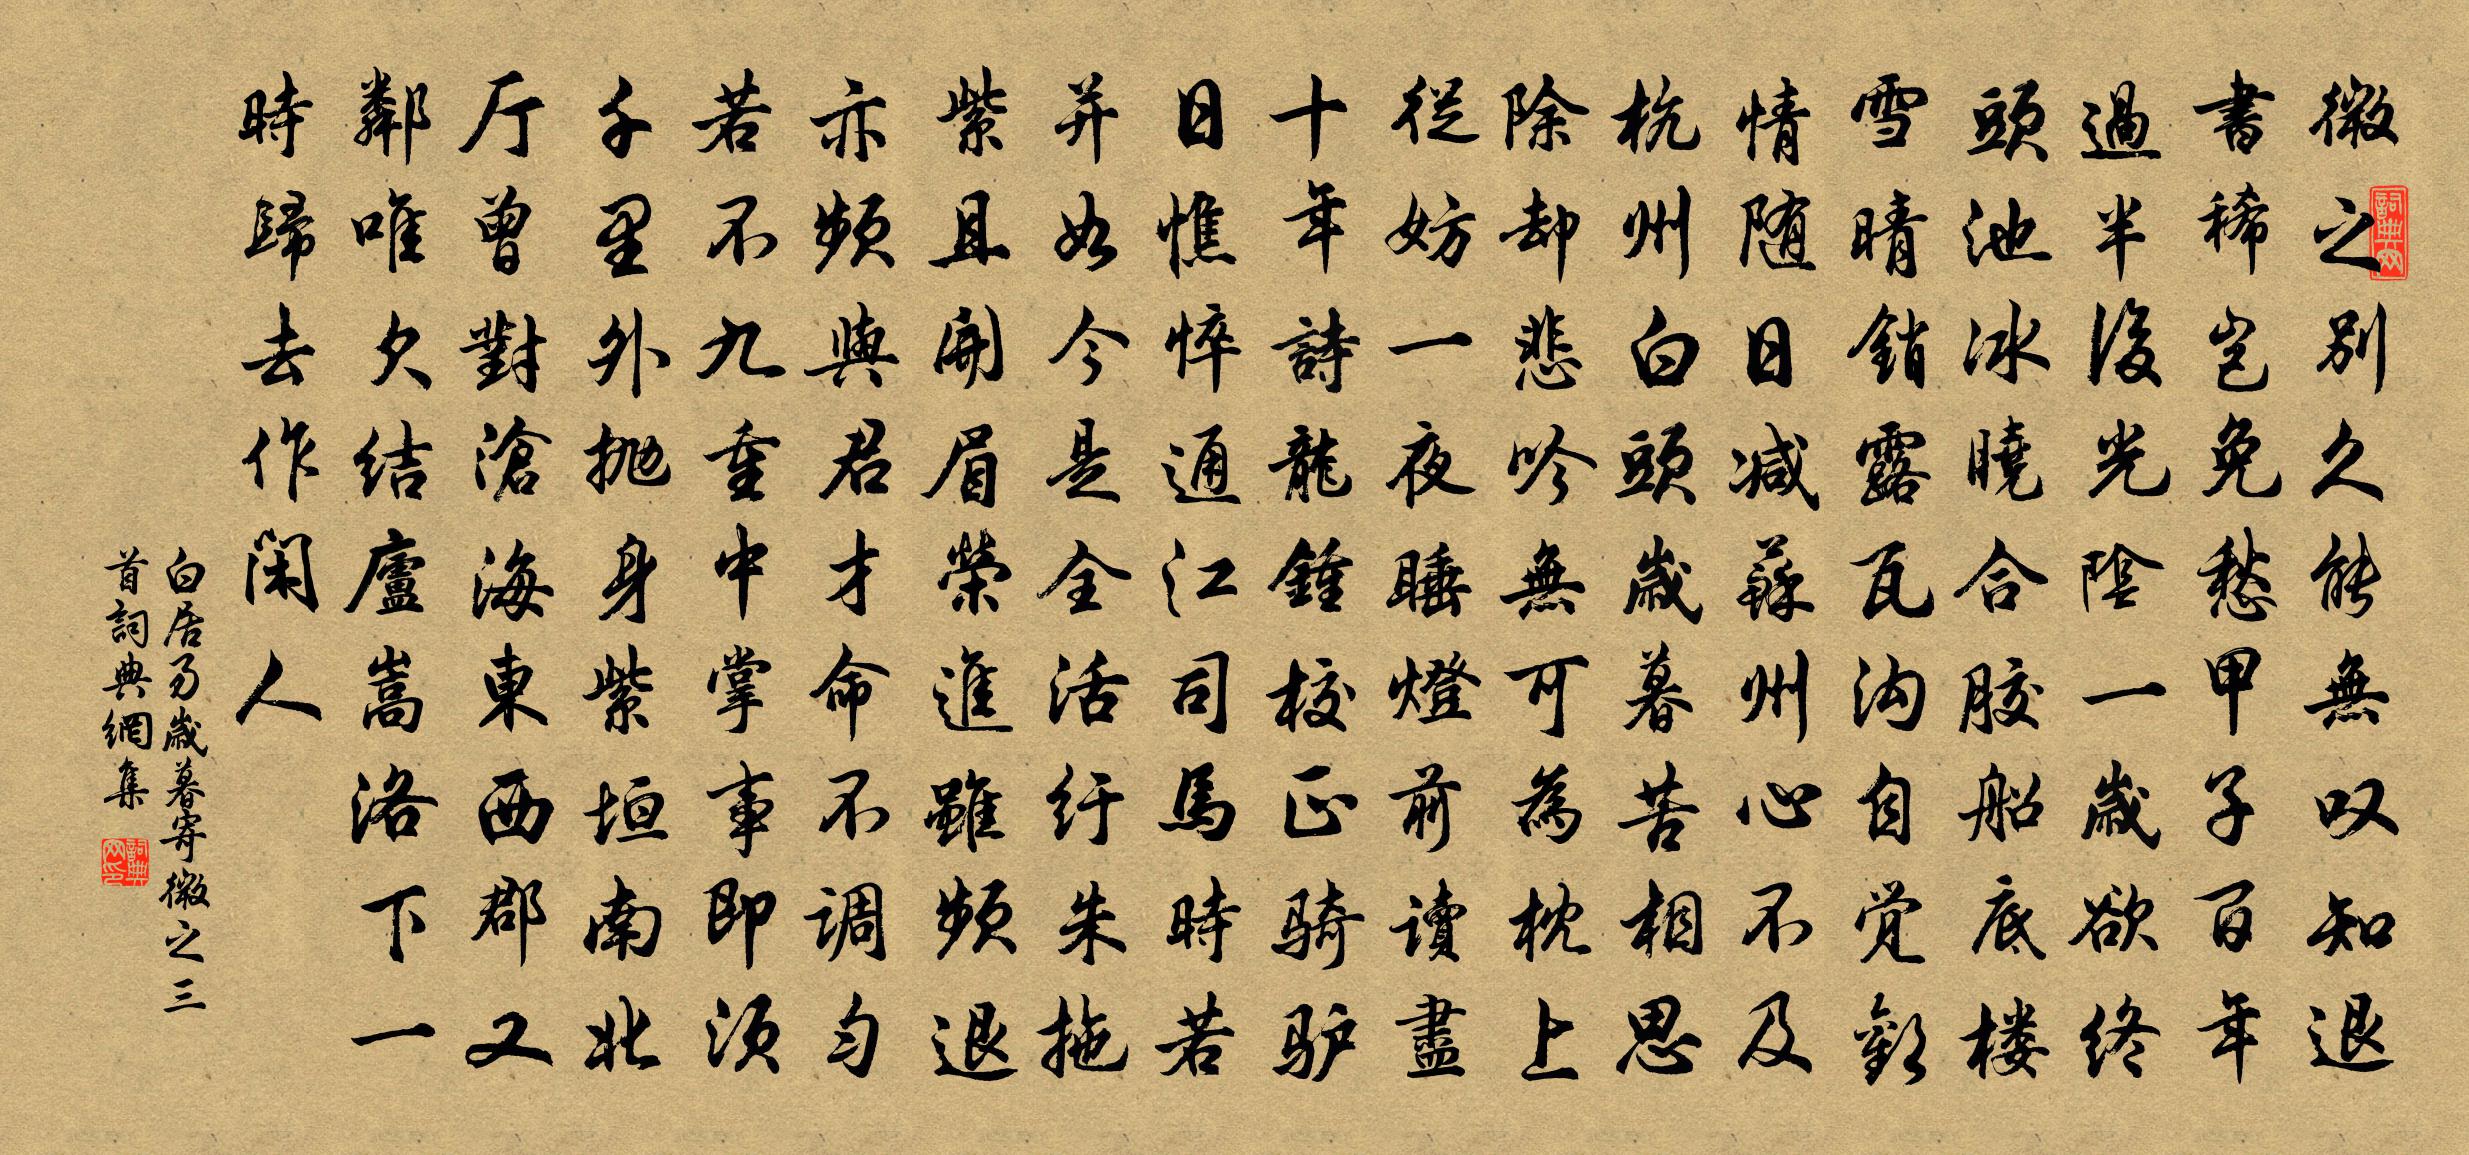 微之別久能無叹知退
書稀豈免愁甲子百年
過半後光陰一歲欲終
頭池冰曉合胶船底楼
雪晴銷露瓦沟自觉歡
情随日减蘇州心不及
杭州白頭歲暮苦相思
除却悲吟無可為枕上
從妨一夜睡燈前讀盡
十年詩龍鍾校正骑驴
日憔悴通江司馬時若
并如今是全活纡朱拖
紫且開眉榮進雖頻退
亦頻與君才命不调勻
若不九重中掌事即須
千里外抛身紫垣南北
厅曾對滄海東西郡又
鄰唯欠结廬嵩洛下一
時歸去作閑人
白居易歲暮寄微之三
首詞典網集
詞典网
詞典网印